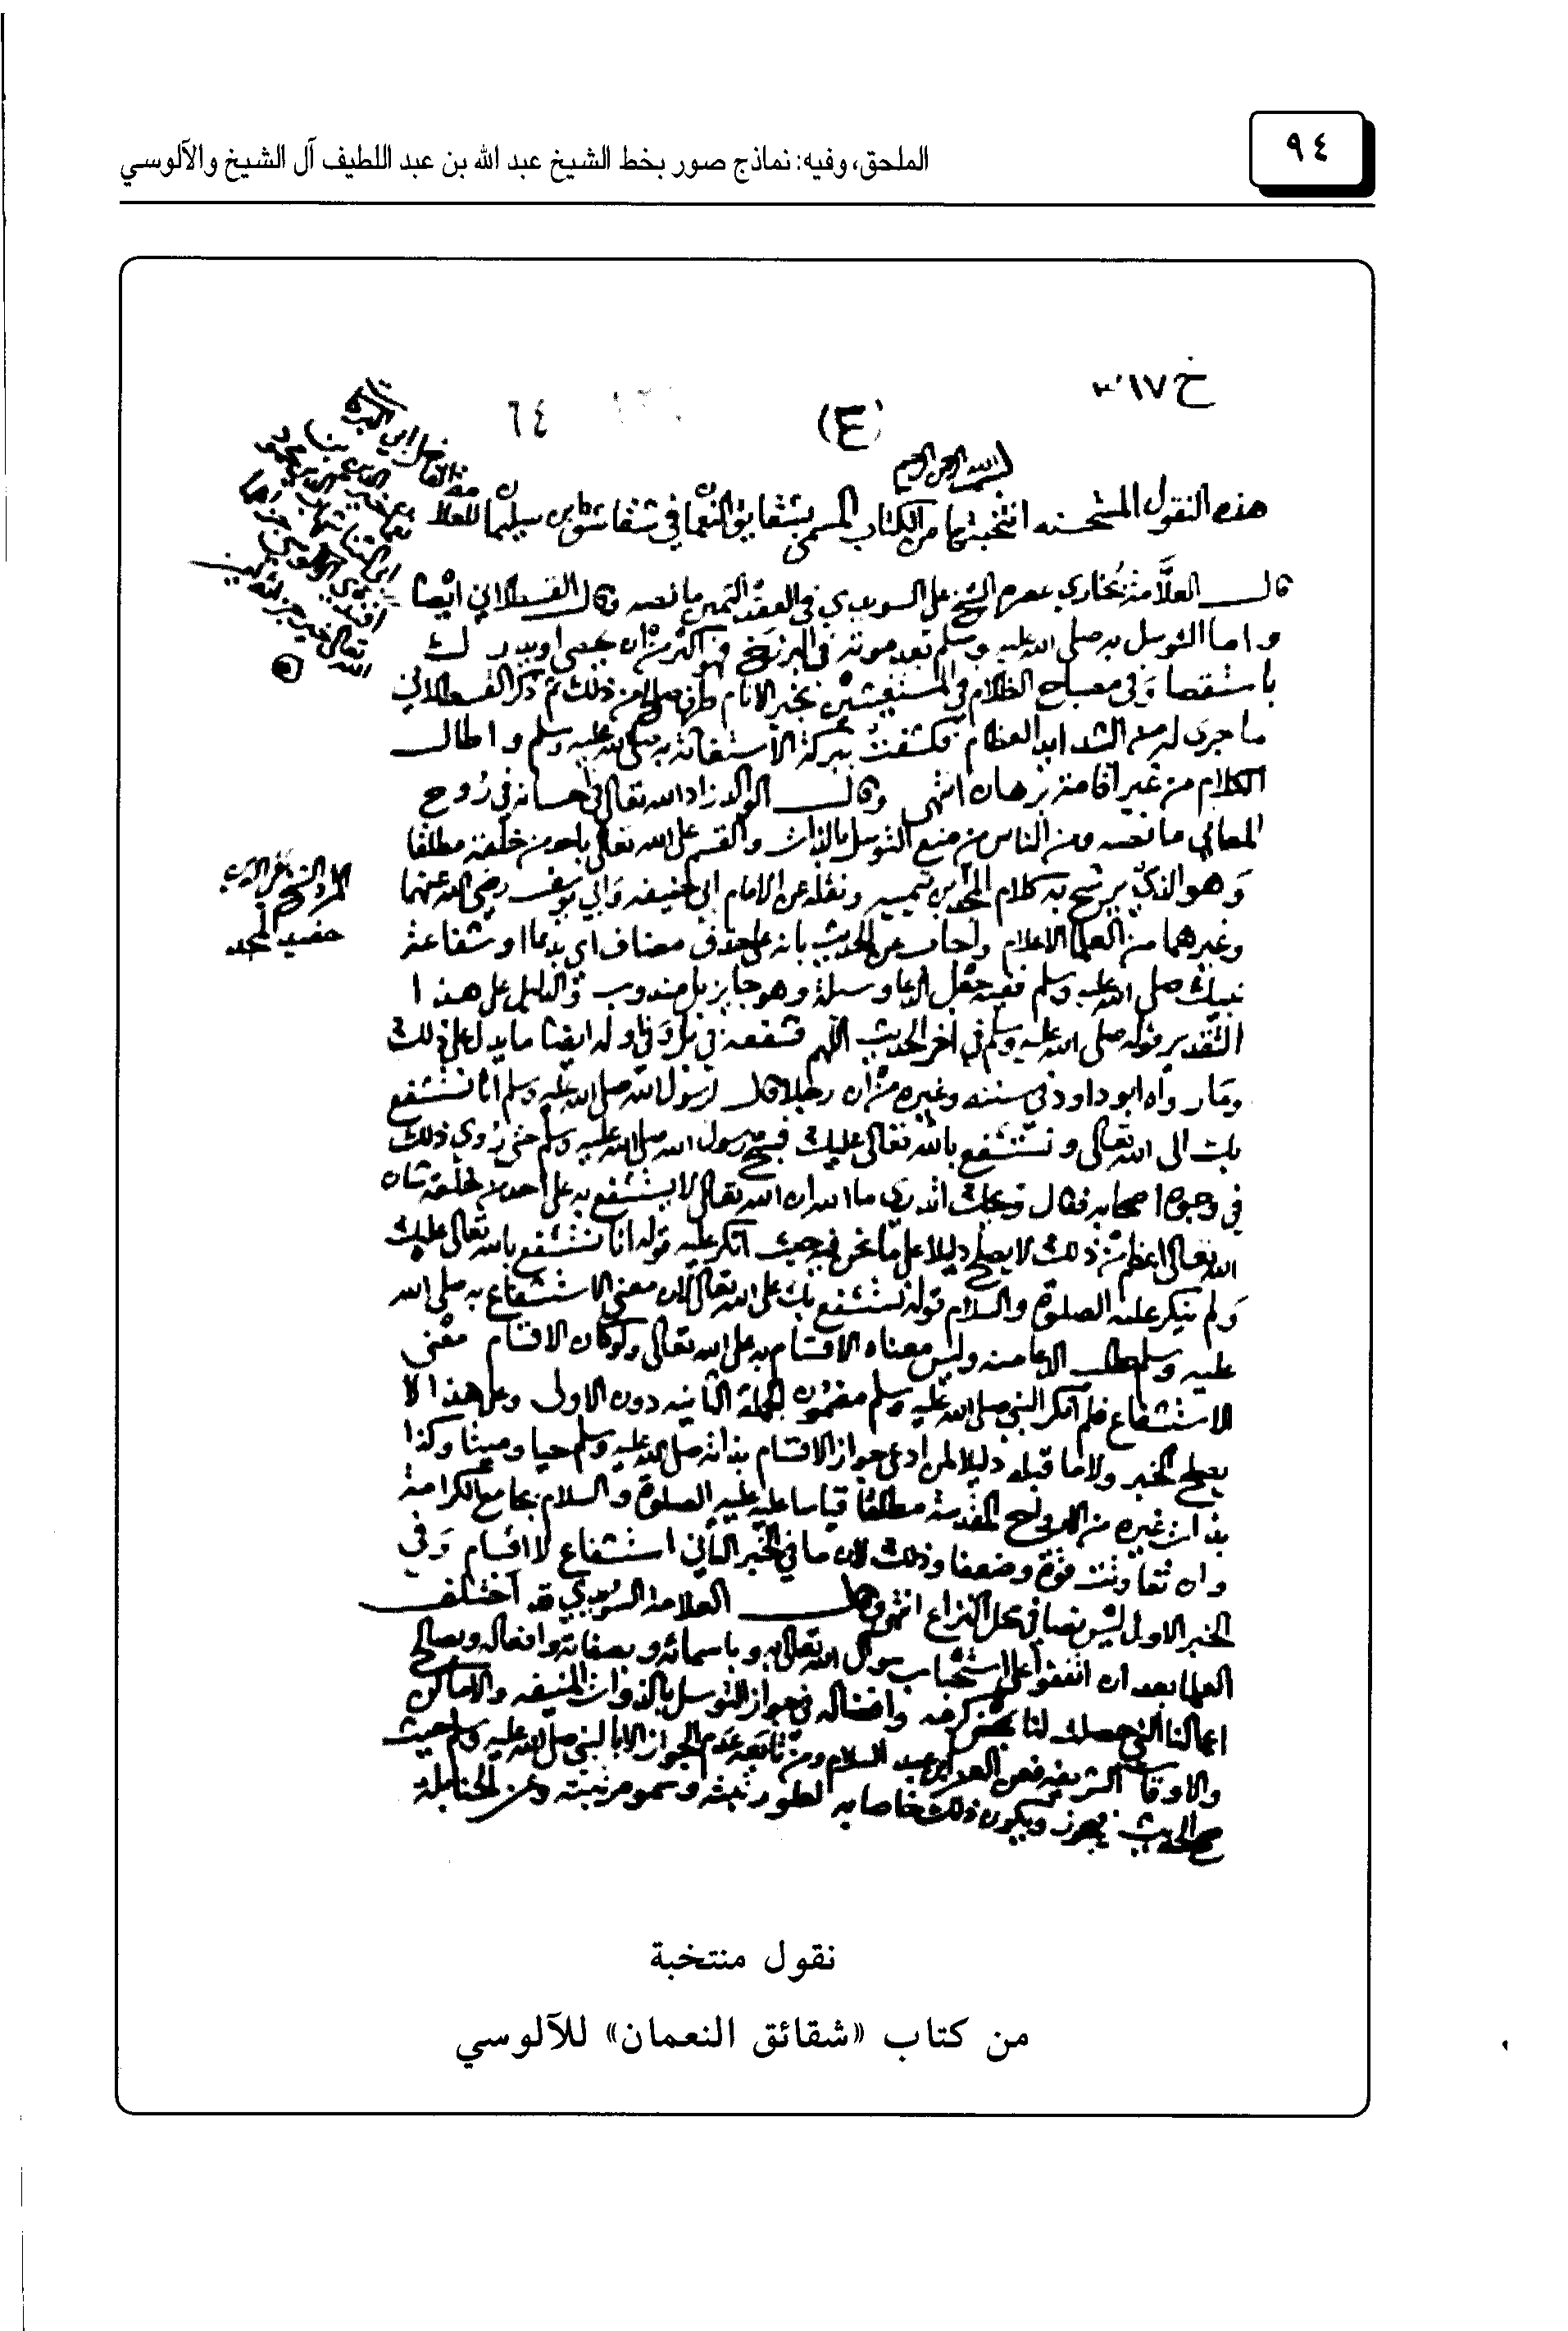 ٩٤
الملحق، وفيه: نماذج صور بخط الشيخ عبد الله بن عبد اللطيف آل الشيخ والآلوسي
٦٤
بسم الله الرحمن الرحيم
هذه النقول المستحسنه انتخبتها من الكتاب المسمى بشقايق النعمان في شقاشق ابن سليمان للعلا
قال العلامة بخاري عصره الشيخ علي السويدي في العقد الثمين ما نصه وقال القسطلاني ايضا
واما التوسل به صلى الله عليه وسلم بعد موته في البرزخ فهو اكثر من ان يحصى او يدرك
باستقصا وفي مصباح الظلام في المستغيثين بخير الانام طرف صالح من ذلك ثم ذكر القسطلاني
ما جرى له من الشدايد العظام فكشفت ببركة الاستغاثة به صلى الله عليه وسلم واطال
الكلام من غير اقامة برهان انتهى وقال الوالد زاد الله تعالى في احسانه في روح
المعاني ما نصه ومن الناس من منع التوسل بالذات والقسم على الله تعالى باحد من خلقه مطلقا
وهو الذي يرشح به كلام المجد ابن تيميه ونقله عن الامام ابي حنيفه وابي يوسف رضي الله عنهما
وغيرهما من العلما الاعلام واجاب عن الحديث بانه على حذف مضاف اي بدعا او شفاعة
نبيك صلى الله عليه وسلم ففيه جعل الدعا وسيلة وهو جايز بل مندوب والدليل على هذا
التقدير قوله صلى الله عليه وسلم في آخر الحديث اللهم فشفعه في بل وفي اوله ايضا ما يدل على ذلك
وما رواه ابو داود في سننه وغيره من ان رجلا قال لرسول الله صلى الله عليه وسلم انا نستشفع
بك الى الله تعالى ونستشفع بالله تعالى عليك فسبح رسول الله صلى الله عليه وسلم حتى رؤي ذلك
في وجوه اصحابه فقال ويحك اتدري ما الله ان الله تعالى لا يستشفع به على احد من خلقه شان
الله تعالى اعظم من ذلك لا يصلح دليلا على ما نحن فيه حيث انكر عليه قوله انا نستشفع بالله تعالى عليك
ولم ينكر عليه الصلوة والسلام قوله نستشفع بك على الله تعالى لان معنى الاستشفاع به صلى الله
عليه وسلم طلب الدعا منه وليس معناه الاقسام به على الله تعالى ولو كان الاقسام معنى
الاستشفاع فلم انكر النبي صلى الله عليه وسلم مضمون الجملة الثانيه دون الاولى وعلى هذا لا
يصلح الخبر ولا ما قبله دليلا لمن ادعى جواز الاقسام بذاته صلى الله عليه وسلم حيا وميتا وكذا
بذات غيره من الارواح المقدسة مطلقا قياسا عليه عليه الصلوة والسلام بجامع الكرامة
وان تفاوتت قوة وضعفا وذلك لان ما في الخبر الثاني استشفاع لا اقسام وفي
الخبر الاول ليس نصا في محل النزاع انتهى وقال العلامة السويدي قد اختلف
العلما بعد ان اتفقوا على استحباب سؤال الله تعالى به وباسمائه وبصفاته وافعاله وبصالح
اعمالنا التي حصلت لنا بمحض كرمه وافضاله في جواز التوسل بالذوات المنيفه والاماكن
والاوقات الشريفه فعن العز ابن عبد السلام ومن تابعه عدم الجواز الا بالنبي صلى الله عليه وسلم حيث
صح الحديث فيجوز ويكون ذلك خاصا به لعلو رتبته وسمو مرتبته وعن الحنابلة
المراد الشيخ تقي الدين
حفيد المجد
نقول منتخبة
من كتاب «شقائق النعمان» للآلوسي